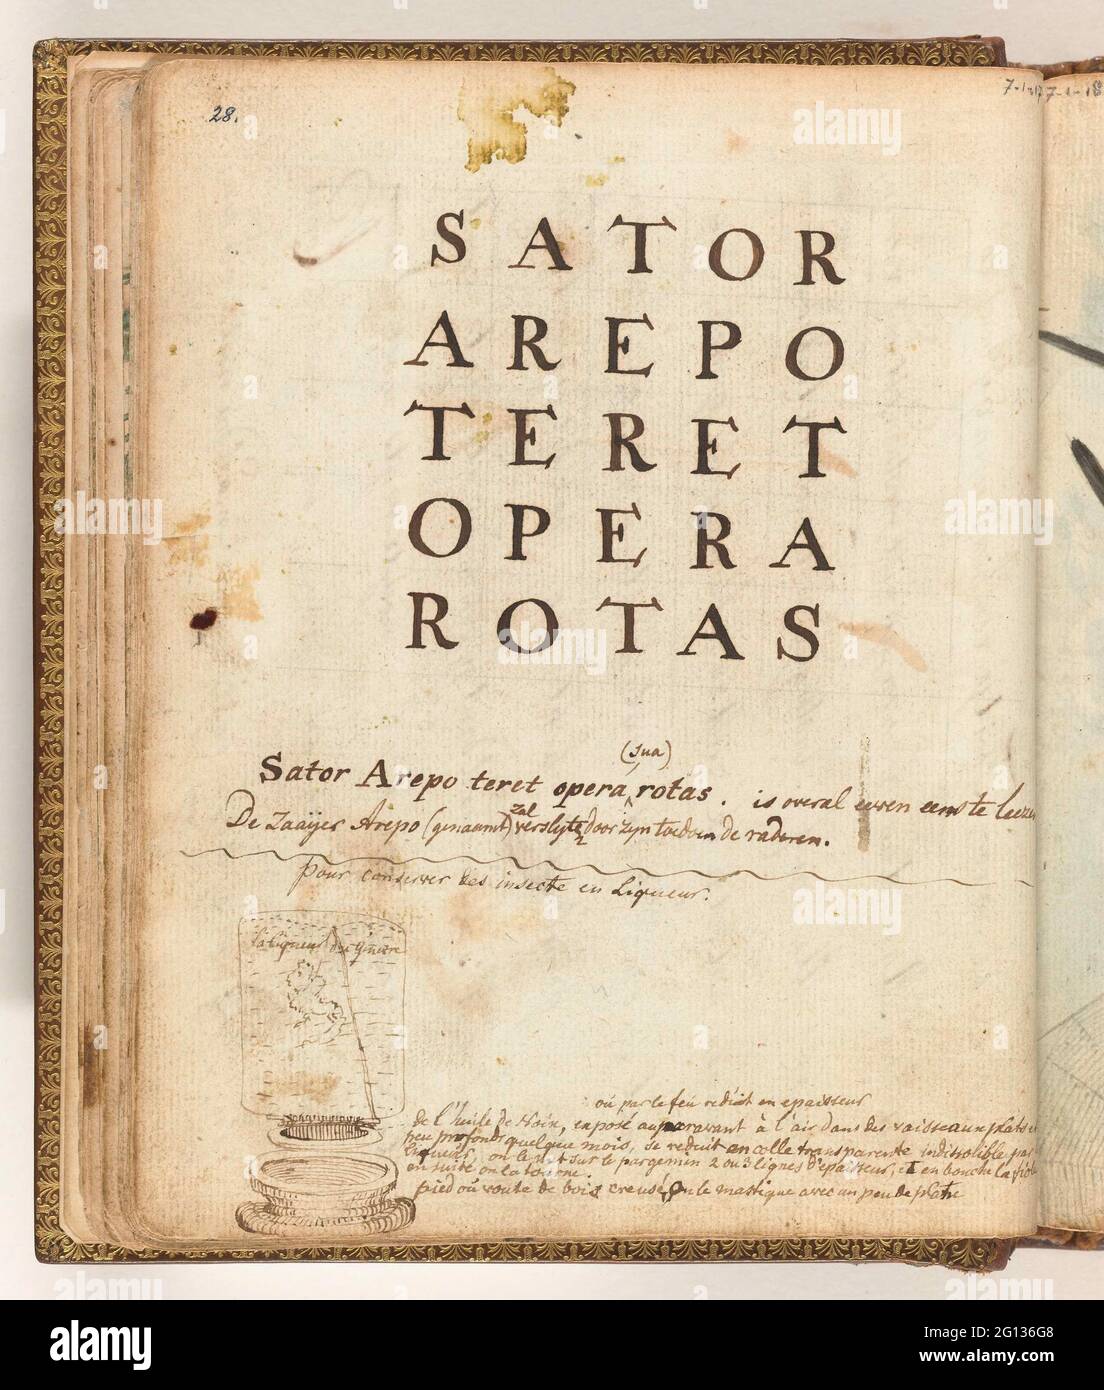 28.
7-1-17 7-1-18
S A T O R
A R E P O
T E R E T
O P E R A
R O T A S
(sua)
Sator Arepo teret opera rotas. is overal even eens te leezen
De Zaaijer Arepo (genaamt) zal verslyten door zyn toedoen de raderen.
Pour conserver des insecte en Liqueur.
la Liqueur du
ou par le feu reduit en epaisseur
de l'huile de Noix, exposé auparavant à l'air dans des vaisseaux plats
peu profonds quelques mois, se reduit en colle transparente indissolible par
Liqueur, on le met sur le pargemin 2 ou 3 lignes d'epaisseur, et en bouche la
en suite on la tourne.
pied où route de bois creusé, on le mastique avec un peu de platre
alamy
Image ID: 2G136G8
www.alamy.com